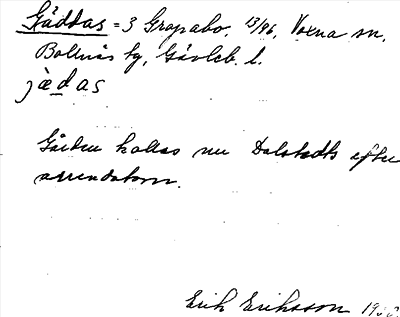 Gäddas = 3 Gropabo, 13/96, Voxna sn,
Bollnäs tg, Gävleb. l.
jàdas
Gården kallas nu Dalstedts efter
arrendatorn.
Erik Eriksson